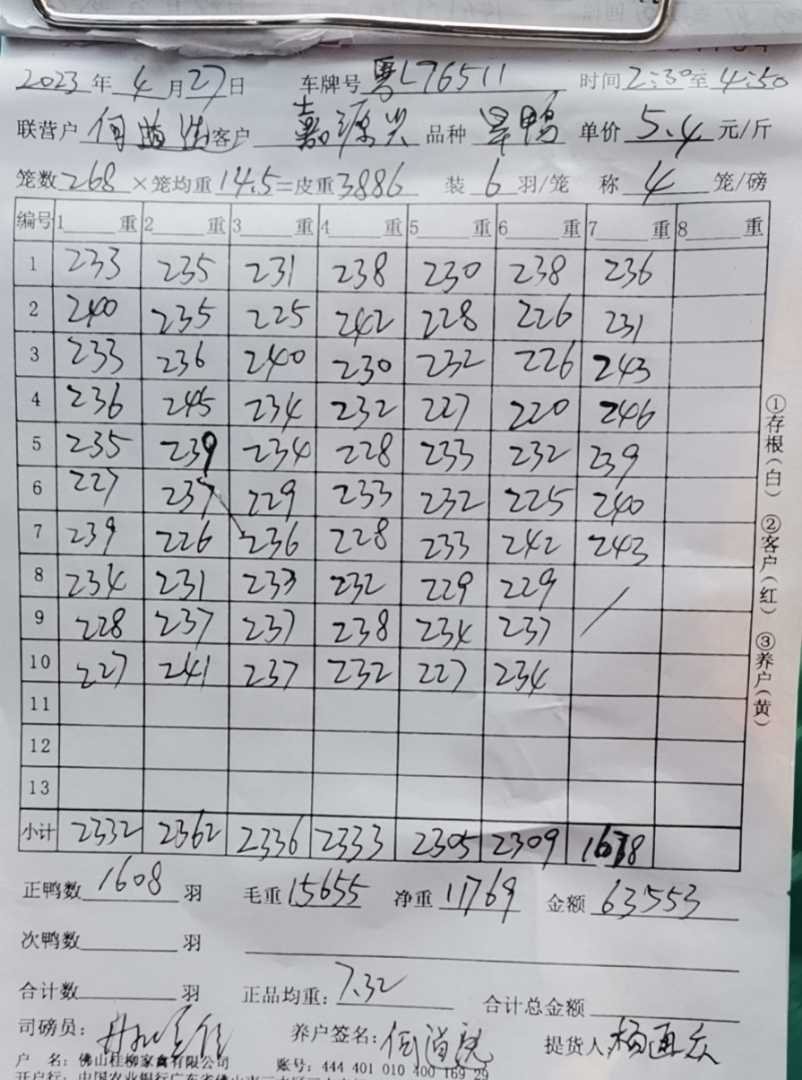 2023年4月27日 车牌号粤L76511 时间2:30至4:50
联营户何道 客户嘉源兴 品种旱鸭 单价5.4元/斤
笼数268×笼均重14.5=皮重3886 装6羽/笼 称4笼/磅
编号 1重 2重 3重 4重 5重 6重 7重 8重
1 233 235 231 238 230 238 236
2 240 235 225 242 228 226 231
3 233 236 240 230 232 226 243
4 236 245 234 232 227 220 246
5 235 239 234 228 233 232 239
6 227 237 229 233 232 225 240
7 239 226 236 228 233 242 243
8 234 231 233 232 229 229 /
9 228 237 237 238 234 237
10 227 241 237 232 227 234
11
12
13
小计 2332 2362 2336 2333 2305 2309 1678
正鸭数1608羽 毛重15655 净重11769 金额63553
次鸭数羽
合计数羽 正品均重:7.32 合计总金额
司磅员: 养户签名:何道 提货人:杨再众
户 名:佛山桂柳家禽有限公司 账号:444 401 010 400 169 29
开户行:中国农业银行广东省佛山市三水区
①存根(白) ②客户(红) ③养户(黄)